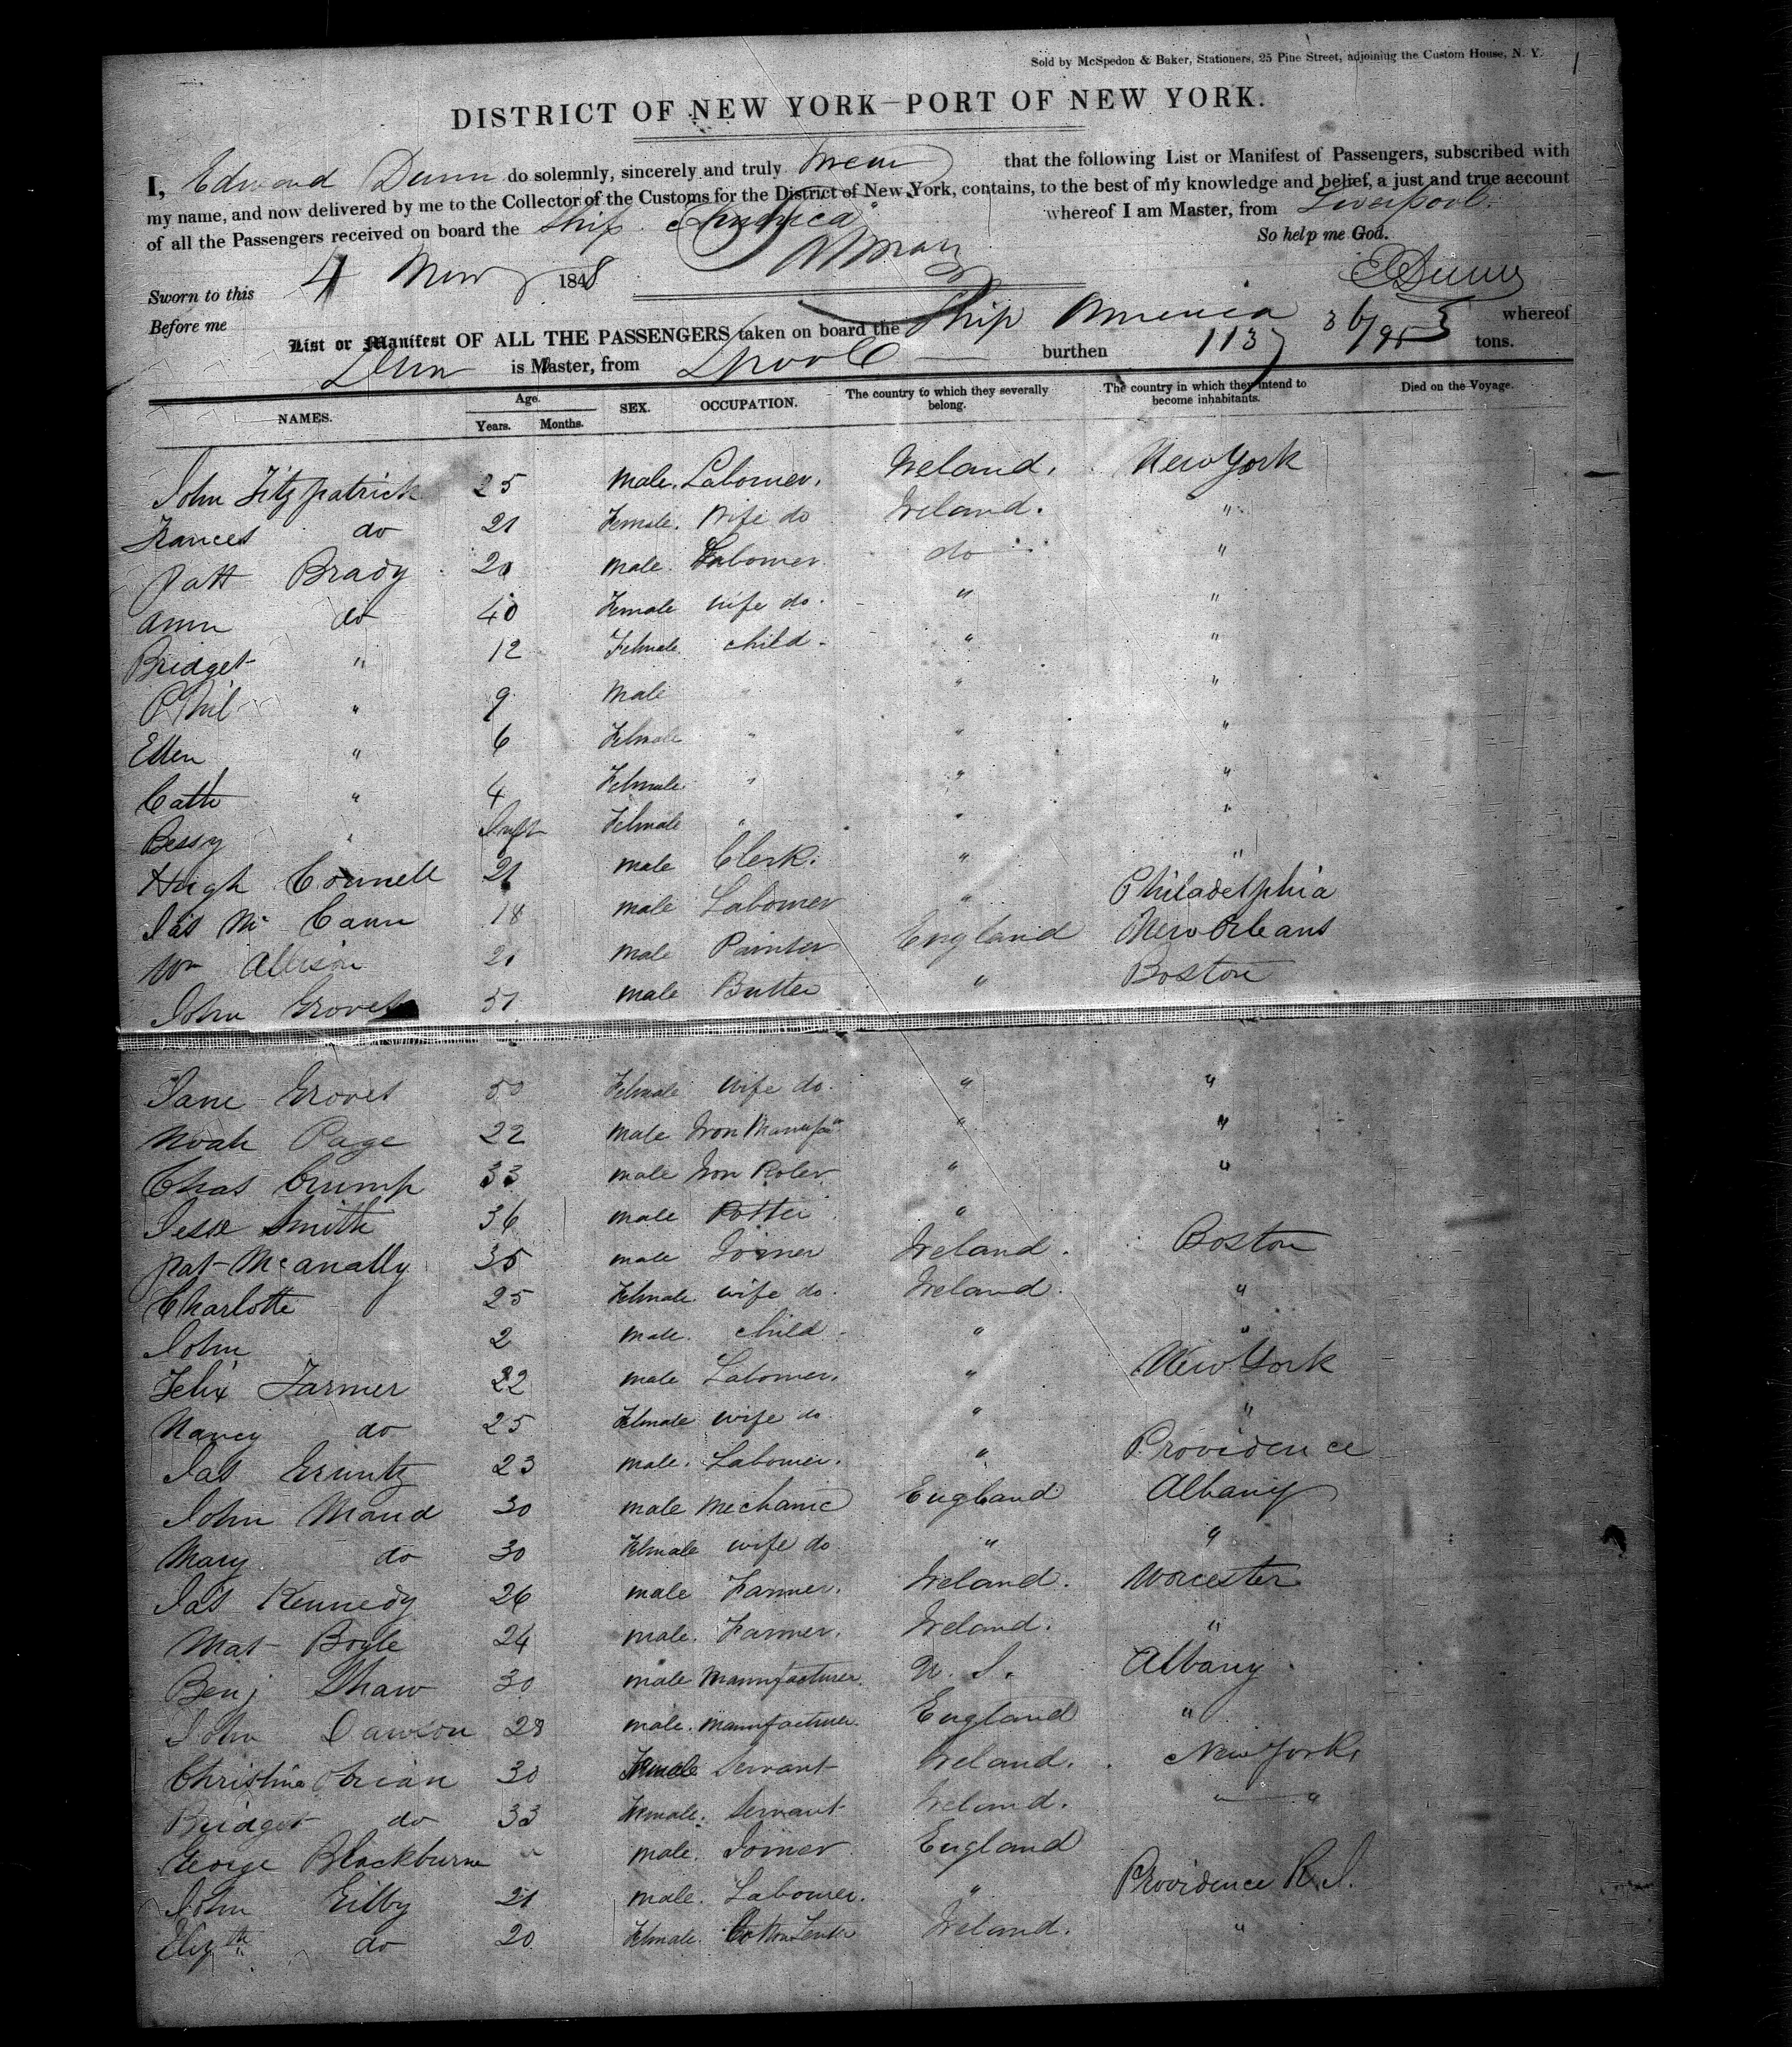 Sold by McSpedon & Baker, Stationers, 25 Pine Street, adjoining the Custom House, N. Y.
DISTRICT OF NEW YORK—PORT OF NEW YORK.
I, Edward Dunn do solemnly, sincerely and truly swear that the following List or Manifest of Passengers, subscribed with
my name, and now delivered by me to the Collector of the Customs for the District of New York, contains, to the best of my knowledge and belief, a just and true account
of all the Passengers received on board the Ship America whereof I am Master, from Liverpool.
So help me God.
Sworn to this 4 May 1848 E Dunn
Before me
List or Manifest OF ALL THE PASSENGERS taken on board the Ship America whereof
Dunn is Master, from Lpool burthen 1137 36/95 tons.
NAMES. Age. Years. Months. SEX. OCCUPATION. The country to which they severally belong. The country in which they intend to become inhabitants. Died on the Voyage.
John Fitzpatrick 25 Male. Labourer. Ireland. New York
Frances do 21 Female. Wife do Ireland. "
Patt Brady 20 Male. Labourer do "
Ann do 40 Female wife do. " "
Bridget " 12 Female. child. " "
Phil " 9 Male " " "
Ellen " 6 Female " " "
Cath " 4 Female " " "
Bessy " Inft Female " " "
Hugh Connell 21 male Clerk. " "
Jas Mc Cann 18 male Labourer " Philadelphia
Wm Allison 21 male Painter England New Orleans
John Groves 51 male Butter " Boston
Jane Groves 50 Female wife do. " "
Noah Page 22 male Iron Manufr " "
Chas Crump 33 male Iron Roler " "
Jesse Smith 36 male Potter "
Pat McAnally 35 male Joiner Ireland. Boston
Charlotte 25 Female. wife do. Ireland. "
John 2 male. child. " "
Felix Farmer 22 male Labourer. " New York
Nancy do 25 Female wife do " "
Jas Gruntz 23 male. Labourer. " Providence
John Maud 30 male Mechanic England Albany
Mary do 30 Female wife do " "
Jas Kennedy 26 male Farmer. Ireland. Worcester
Mat Boyle 24 male. Farmer. Ireland. "
Benj Shaw 30 male Manufacturer. U. S. Albany
John Dawson 28 male. manufacturer. England "
Christina Brian 30 Female Servant Ireland. New York
Bridget do 33 Female. Servant Ireland. " "
George Blackburne " male. Joiner England
John Gilby 21 male. Labourer. " Providence R. I.
Elizth do 20 Female. Ireland. "